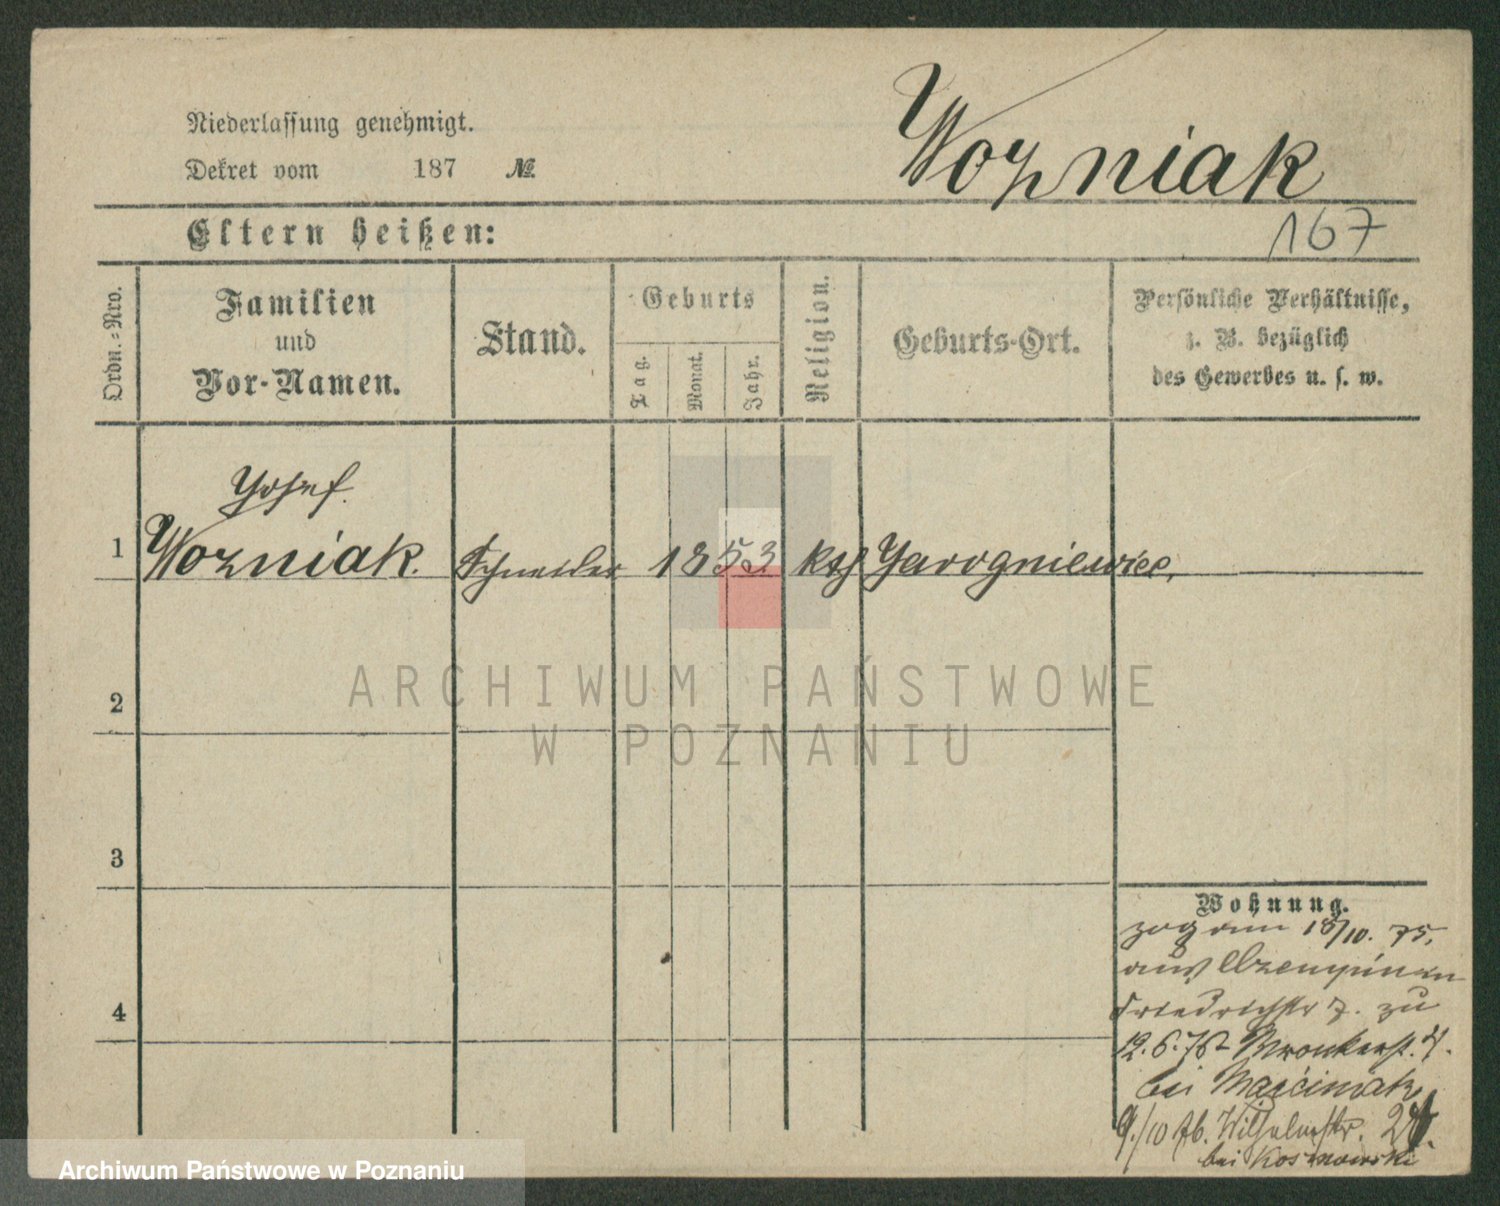 Niederlassung genehmigt.
Dekret vom 187 №
Wozniak
167
Eltern heißen:
Ordn.=Nro.
Familien
und
Vor-Namen.
Stand.
Geburts
Tag.
Monat.
Jahr.
Religion.
Geburts-Ort.
Persönliche Verhältnisse,
z. B. bezüglich
des Gewerbes u. s. w.
Josef.
1 Wozniak. Schneider 1853 kth Jarogniewice,
2
3
4
ARCHIWUM PAŃSTWOWE
W POZNANIU
Wohnung.
zog am 18/10. 75.
aus
Friedrichstr 7. zu
12.6.76 Wronkerstr. 4.
bei Marciniak
9./10 76. Wilhelmstr.
bei Kosmowski
Archiwum Państwowe w Poznaniu